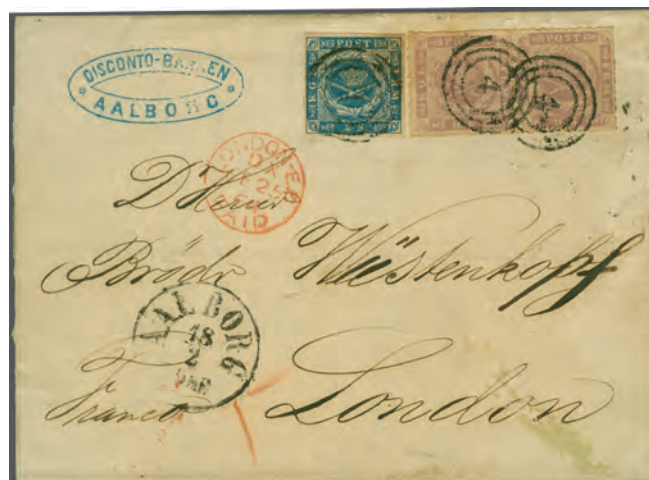 DISCONTO-BANKEN
AALBORG
POST
POST
POST
4
LONDON-E.C
25
PAID
D'Herrer
Brödr Wüstenkopf
AALBORG
18
2
Franco London